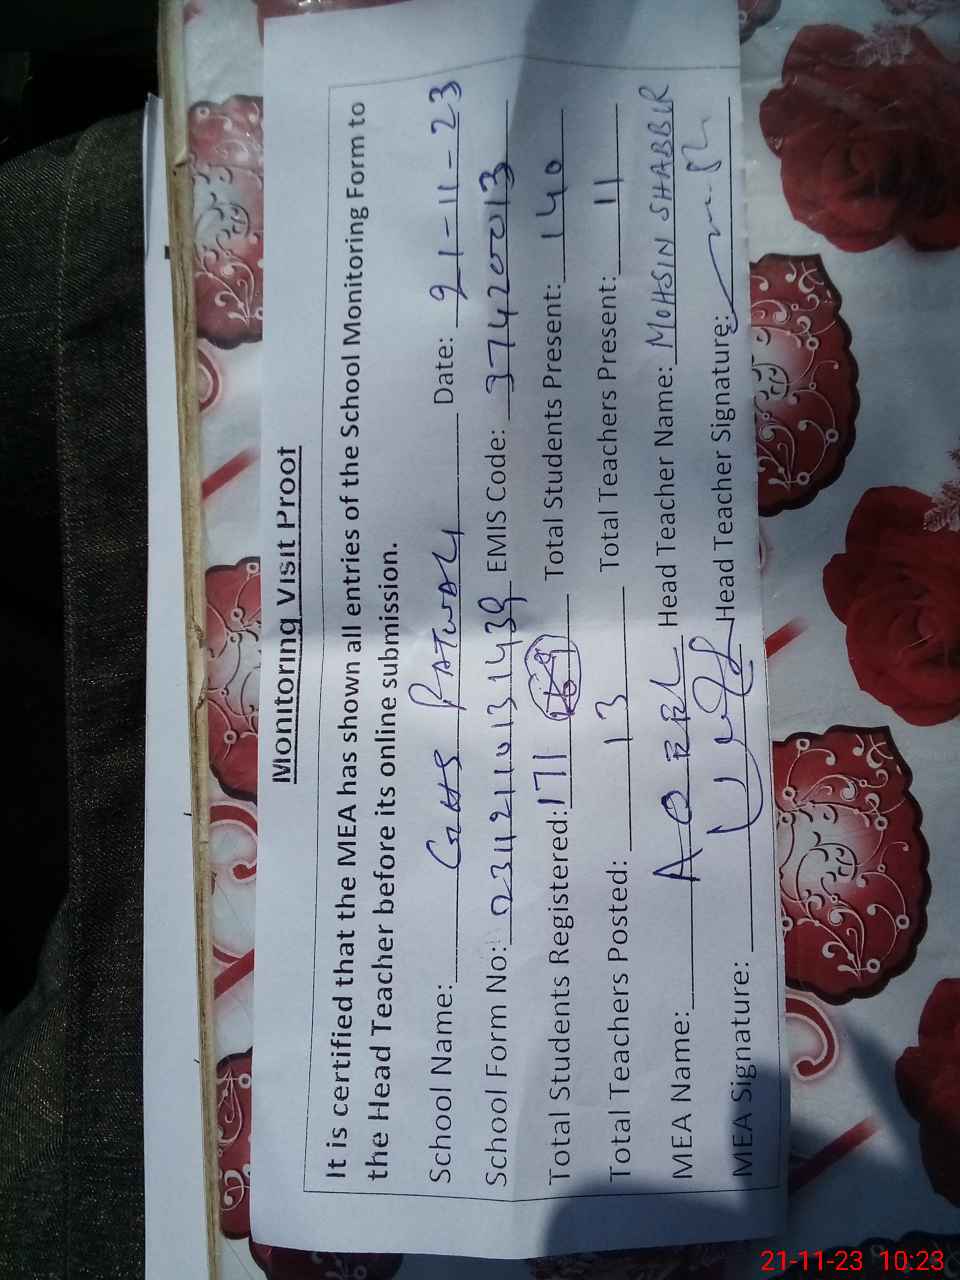 Monitoring Visit Proof
It is certified that the MEA has shown all entries of the School Monitoring Form to
the Head Teacher before its online submission.
School Name: GHS PATWALY Date: 21-11-23
School Form No: 2311211013 1439 EMIS Code: 37420013
Total Students Registered: 171 Total Students Present: 140
Total Teachers Posted: 13 Total Teachers Present: 11
MEA Name: Head Teacher Name: MOHSIN SHABBIR
MEA Signature: Head Teacher Signature:
21-11-23 10:23